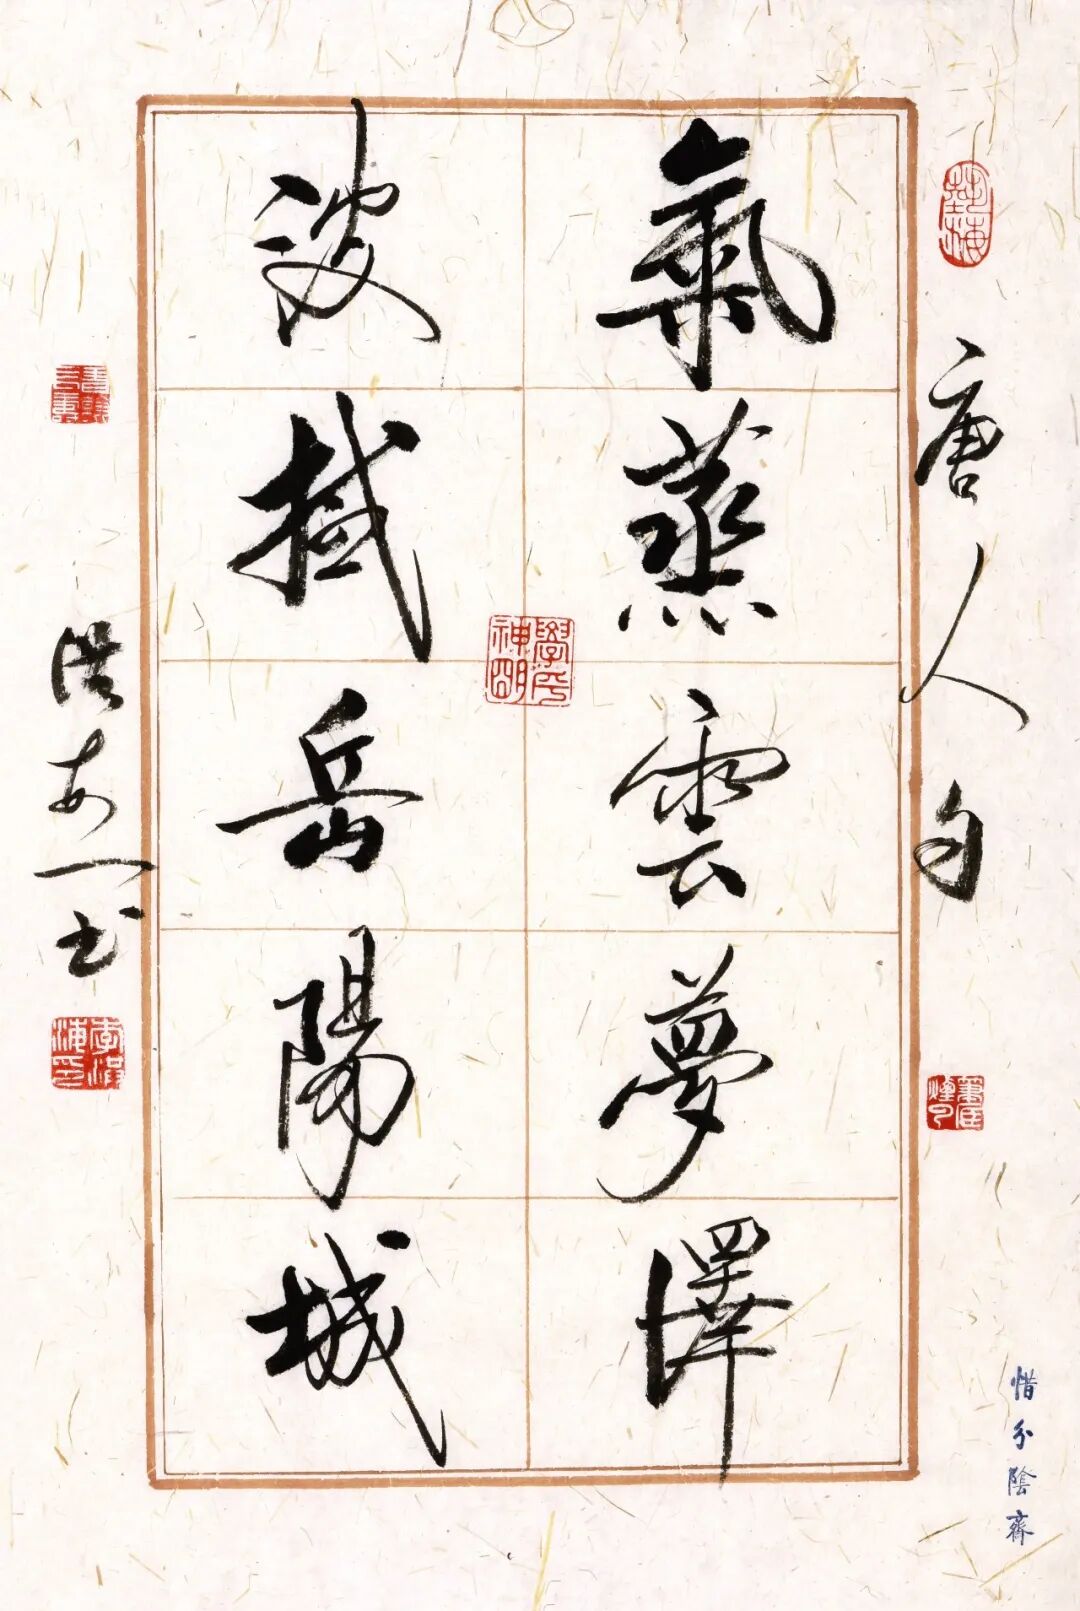 唐人句
氣蒸雲夢澤
波撼岳陽城
洪书
李洪海印
惜分陰齋